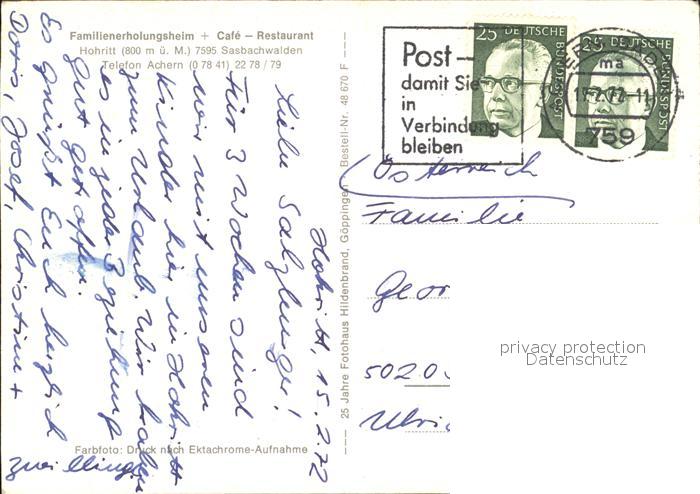 Familienerholungsheim + Café – Restaurant
Hohritt (800 m ü. M.) 7595 Sasbachwalden
Telefon Achern (0 78 41) 22 78 / 79
Hohritt, 15.2.72
Liebe Salzburger!
Für 3 Wochen sind
wir mit unseren
Kinder hier in Hohritt
zum Urlaub. Wir haben
es in jeder Beziehung
gut getroffen.
Es grüßt Euch herzlich
Doris, Josef, Christine +
Zwillinge
Farbfoto: Druck nach Ektachrome-Aufnahme
25 Jahre Fotohaus Hildenbrand, Göppingen Bestell-Nr. 48 670 F
Post –
damit Sie
in
Verbindung
bleiben
25 DEUTSCHE BUNDESPOST
25 DEUTSCHE BUNDESPOST
ma
759
Österreich
Familie
Geor
502.0
Ulri
privacy protection
Datenschutz